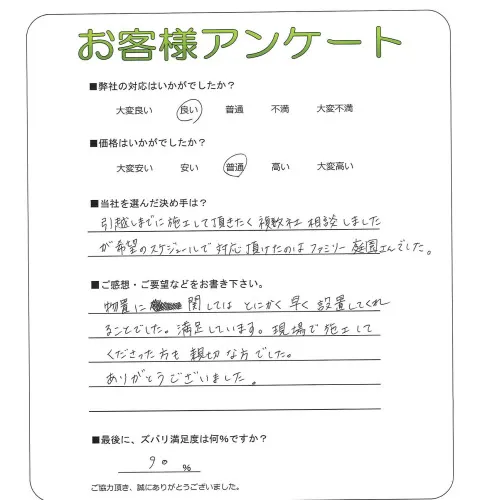 お客様アンケート
■弊社の対応はいかがでしたか？
大変良い 良い 普通 不満 大変不満
■価格はいかがでしたか？
大変安い 安い 普通 高い 大変高い
■当社を選んだ決め手は？
引越しまでに施工して頂きたく複数社相談しました
が希望のスケジュールで対応頂けたのはファミリー庭園さんでした。
■ご感想・ご要望などをお書き下さい。
物置に関しては とにかく早く設置してくれ
ることでした。満足しています。現場で施工して
くださった方も親切な方でした。
ありがとうございました。
■最後に、ズバリ満足度は何%ですか？
90 %
ご協力頂き、誠にありがとうございました。